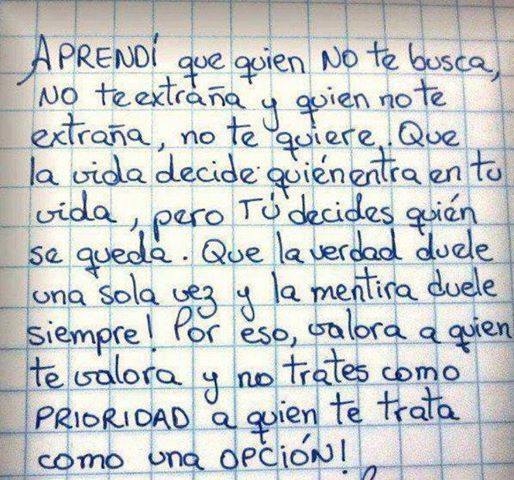 APRENDÍ que quien NO te busca,
NO te extraña y quien no te
extraña, no te quiere. Que
la vida decide quién entra en tu
vida, pero TÚ decides quién
se queda. Que la verdad duele
una sola vez y la mentira duele
siempre! Por eso, valora a quien
te valora y no trates como
PRIORIDAD a quien te trata
como una OPCIÓN!